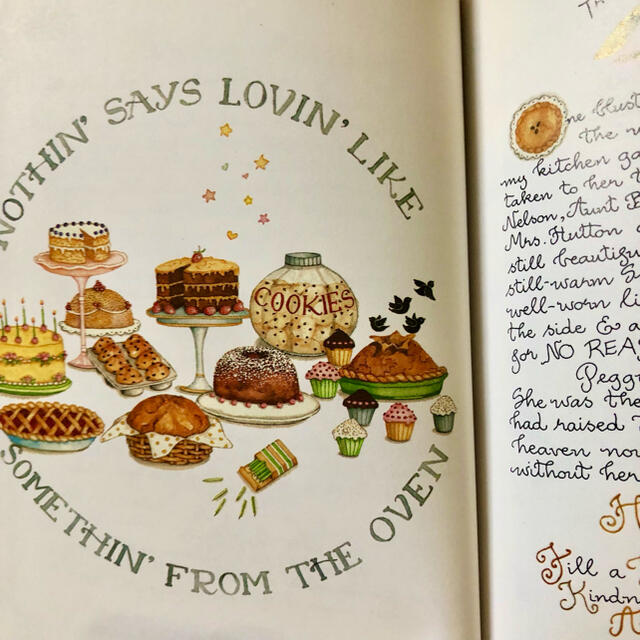 NOTHIN' SAYS LOVIN' LIKE
COOKIES
SOMETHIN' FROM THE OVEN
ne
the
my kitchen
taken to her
Nelson, Aunt
Mrs. Hutton
still beautiful
still-warm
well-worn
the side & a
for NO
Peggy
She was the
had raised
heaven
without her
Fill a